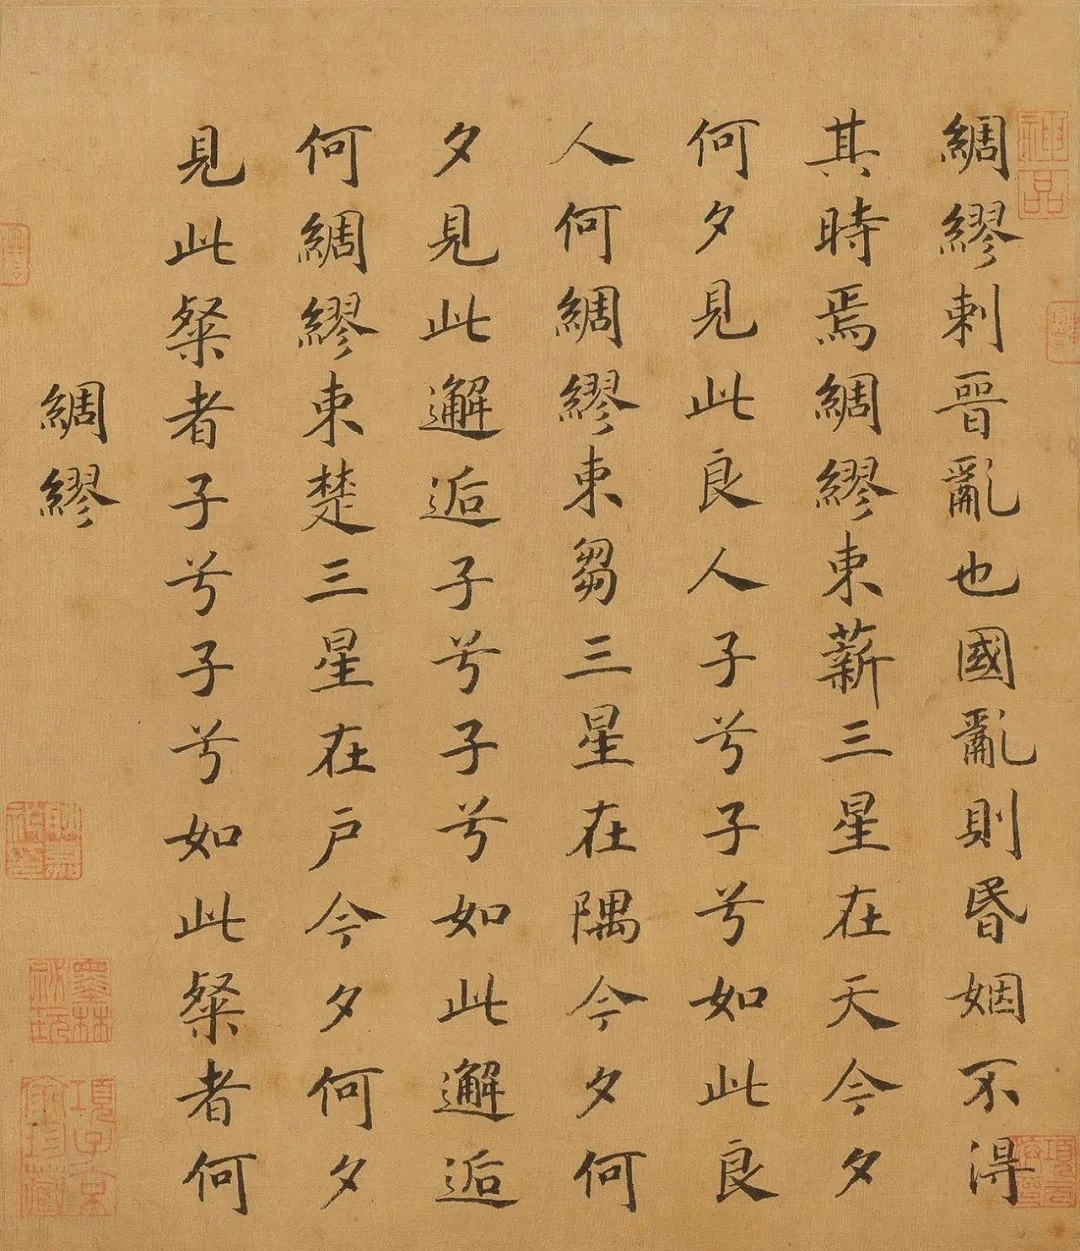 神品
綢繆刺晉亂也國亂則昬姻不得
其時焉綢繆束薪三星在天今夕
何夕見此良人子兮子兮如此良
人何綢繆束芻三星在隅今夕何
夕見此邂逅子兮子兮如此邂逅
何綢繆束楚三星在戶今夕何夕
見此粲者子兮子兮如此粲者何
綢繆
墨林祕玩
項子京家珍藏